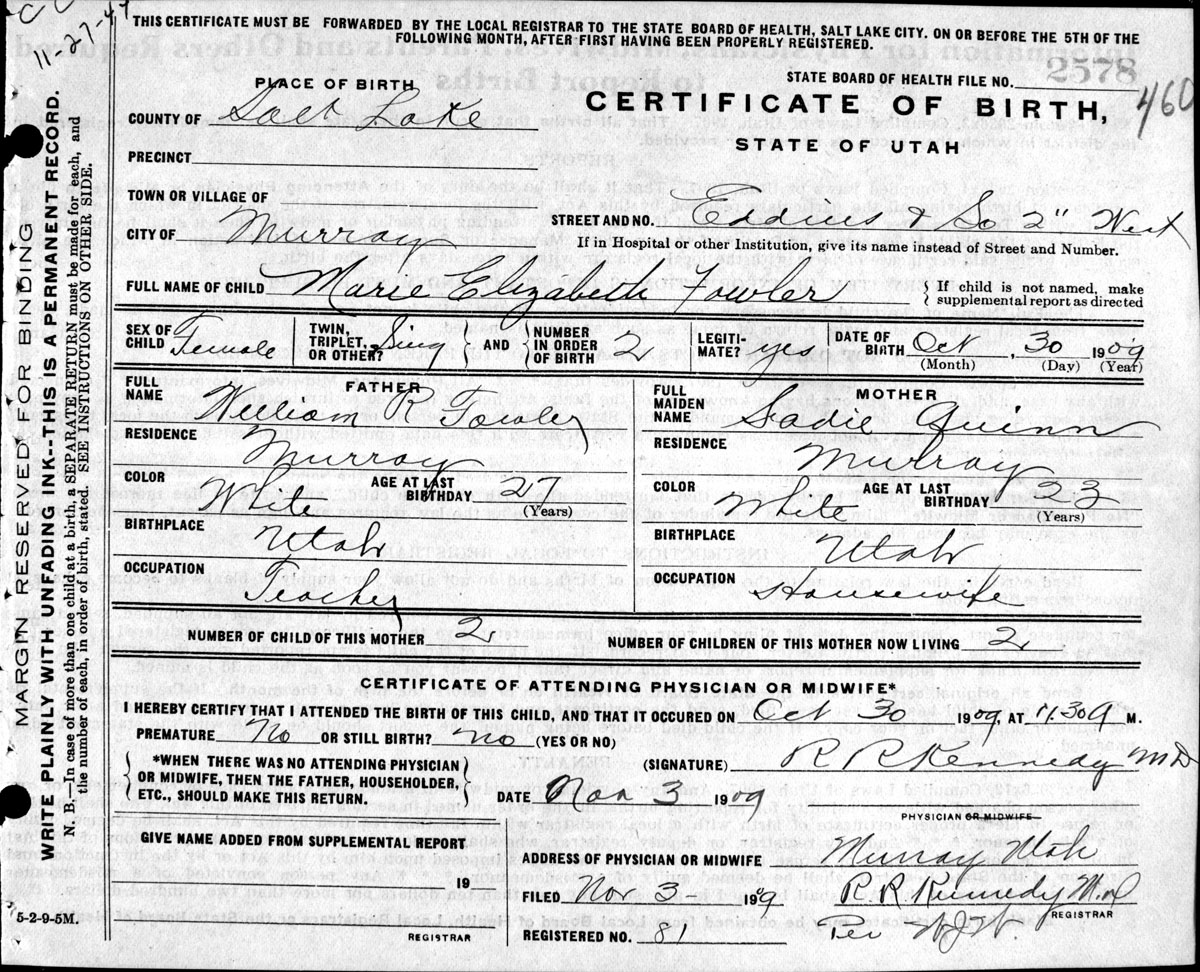 11-27-44
THIS CERTIFICATE MUST BE FORWARDED BY THE LOCAL REGISTRAR TO THE STATE BOARD OF HEALTH, SALT LAKE CITY. ON OR BEFORE THE 5TH OF THE
FOLLOWING MONTH, AFTER FIRST HAVING BEEN PROPERLY REGISTERED.
STATE BOARD OF HEALTH FILE NO. 2578
460
PLACE OF BIRTH
CERTIFICATE OF BIRTH,
STATE OF UTAH
COUNTY OF Salt Lake
PRECINCT
TOWN OR VILLAGE OF
STREET AND NO. & So 2" West
CITY OF Murray
If in Hospital or other Institution, give its name instead of Street and Number.
FULL NAME OF CHILD Marie Elizabeth Fowler { If child is not named, make
supplemental report as directed
SEX OF CHILD Female TWIN, TRIPLET, OR OTHER? Sing { AND } NUMBER IN ORDER OF BIRTH 2 LEGITI-MATE? yes DATE OF BIRTH Oct, 30 1909
(Month) (Day) (Year)
FATHER
FULL NAME William R Fowler
RESIDENCE Murray
COLOR White AGE AT LAST BIRTHDAY 27
(Years)
BIRTHPLACE Utah
OCCUPATION Teacher
MOTHER
FULL MAIDEN NAME Sadie Quinn
RESIDENCE Murray
COLOR White AGE AT LAST BIRTHDAY 23
(Years)
BIRTHPLACE Utah
OCCUPATION Housewife
NUMBER OF CHILD OF THIS MOTHER 2 NUMBER OF CHILDREN OF THIS MOTHER NOW LIVING 2
CERTIFICATE OF ATTENDING PHYSICIAN OR MIDWIFE*
I HEREBY CERTIFY THAT I ATTENDED THE BIRTH OF THIS CHILD, AND THAT IT OCCURED ON Oct 30 1909, AT M.
PREMATURE No OR STILL BIRTH? No (YES OR NO)
{ *WHEN THERE WAS NO ATTENDING PHYSICIAN
OR MIDWIFE, THEN THE FATHER, HOUSEHOLDER,
ETC., SHOULD MAKE THIS RETURN. }
(SIGNATURE) R R Kennedy MD
DATE Nov 3 1909
PHYSICIAN OR MIDWIFE
GIVE NAME ADDED FROM SUPPLEMENTAL REPORT
19
REGISTRAR
ADDRESS OF PHYSICIAN OR MIDWIFE Murray Utah
FILED Nov 3- 1909 R R Kennedy M.D
REGISTRAR
REGISTERED NO. 81 Per
5-2-9-5M.
MARGIN RESERVED FOR BINDING
WRITE PLAINLY WITH UNFADING INK-THIS IS A PERMANENT RECORD.
N. B.—In case of more than one child at a birth, a SEPARATE RETURN must be made for each, and
the number of each, in order of birth, stated. SEE INSTRUCTIONS ON OTHER SIDE.